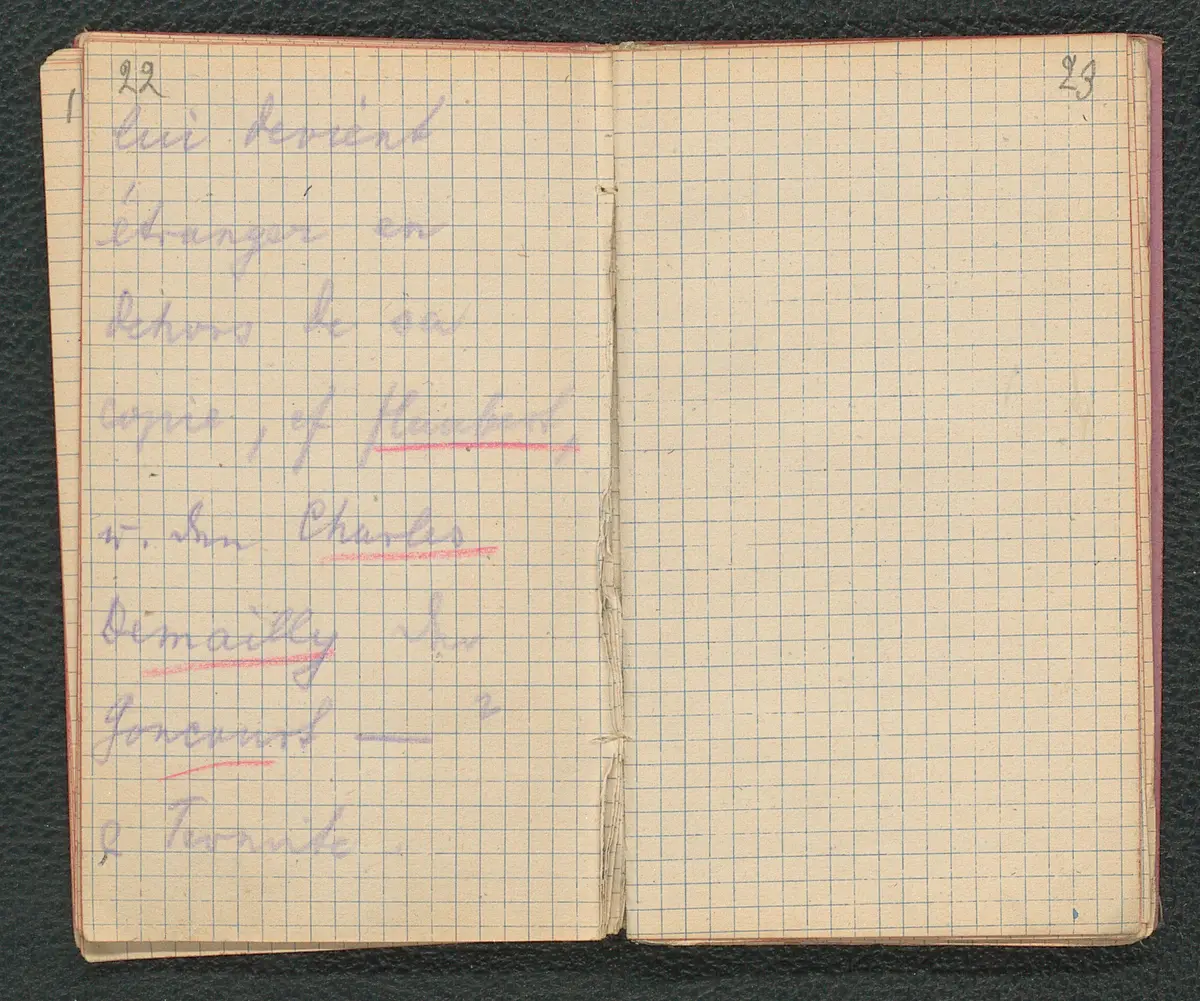 22
lui devient
étranger en
dehors de sa
copie, cf Flaubert,
u. den Charles
Demailly der
Goncourt — ?
23